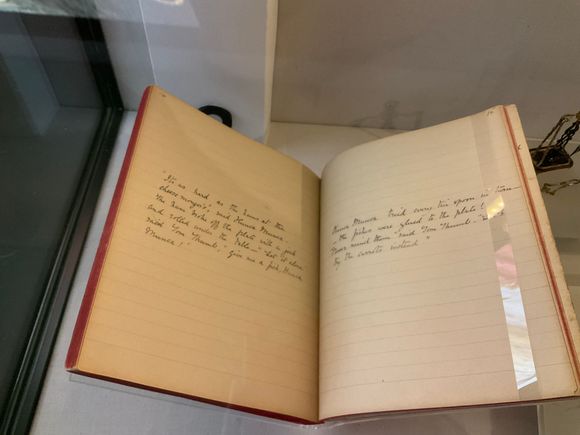 "It's as hard as the hams at the
cheesemonger's", said Hunca Munca.
The ham broke off the plate with a jerk
and rolled under the table – "Let it alone
said Tom Thumb, "Give me a fish, Hunca
Munca!
Hunca Munca tried every tin spoon in turn
– the fishes were glued to the plate!
Never mind them" said Tom Thumb –
try the carrots instead"